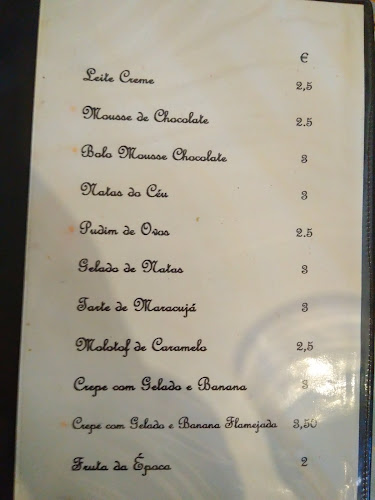 €
Leite Creme 2,5
Mousse de Chocolate 2.5
Bolo Mousse Chocolate 3
Natas do Céu 3
Pudim de Ovos 2.5
Gelado de Natas 3
Tarte de Maracujá 3
Molotof de Caramelo 2,5
Crepe com Gelado e Banana 3
Crepe com Gelado e Banana Flamejada 3,50
Fruta da Época 2